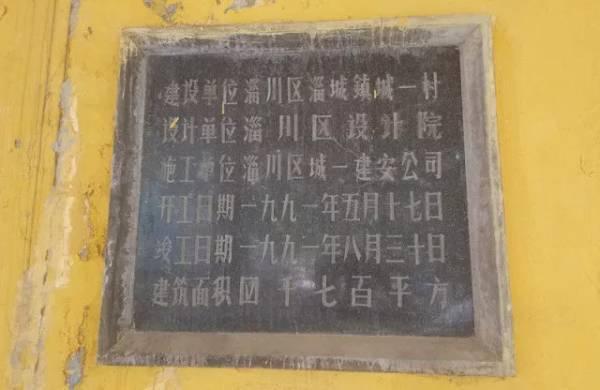 建设单位淄川区淄城鎮城一村
设计单位淄川区设计院
施工单位淄川区城一建安公司
开工日期一九九一年五月十七日
竣工日期一九九一年八月三十日
建筑面积四千七百平方